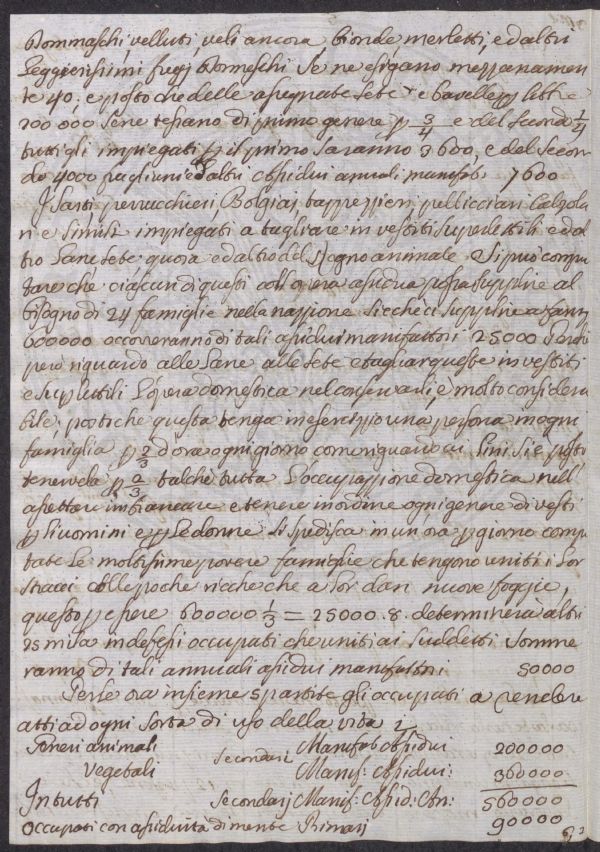 Dommaschi, velluti, veli ancora, bionde, merletti, ed altri
leggierissimi fregj Donneschi se ne esigano mezzanamen
te 40, e posto che delle assegnate sete e bavelle p libb e
200 000 se ne tessano di primo genere p 3/4 e del secondo 1/4
tutti gli impiegati p il primo saranno 3600, e del secon
do 4000 ed altri assidui annuali manifat: 7600
I Sarti perrucchieri, Bolgiaj tappezzieri, pellicciari Calzola
ri e simili impiegati a tagliare in vestiti supelettili ed al
tro Lane sete quoja ed altro del Regno animale. Si può compu
tare che ciascun di questi coll'opera assidua possa supplire al
bisogno di 24 famiglie nella nazione sicché ci supplire a fam:
600000 occorreranno di tali assidui manifattori 25000 Perché
però riguardo alle Lane alle sete e tagliar queste in vestiti
e supelettili l'opera domestica nel conservarli è molto considera
bile, posto che questa tenga in esercizio una persona in ogni
famiglia p 2/3 d'ora ogni giorno come riguardo ai Lini si è posto
tenervela p 2/3 talché tutta l'occupazione domestica nell'
assettare imbiancare e tenere in ordine ogni genere di vesti
p li uomini e p le donne si spedisca in un'ora p giorno compu
tate le moltissime povere famiglie che tengono uniti i lor
stracci colle poche ricche che a lor dan nuove foggie,
questo p essere 600000 1/3 = 25000.8. determinerà altri
25 mila indefessi occupati che uniti ai suddetti somme
ranno di tali annuali assidui manifattori 50000
Per le ora insieme spartite gli occupati a rendere
atti ad ogni sorta di uso della vita i
Generi animali secondarj Manifat: assidui 200000
Vegetali Manif: assidui: 360000
In tutti Secondarj Manif: assid: 560000
Occupati con assiduità di mente Primarj 90000